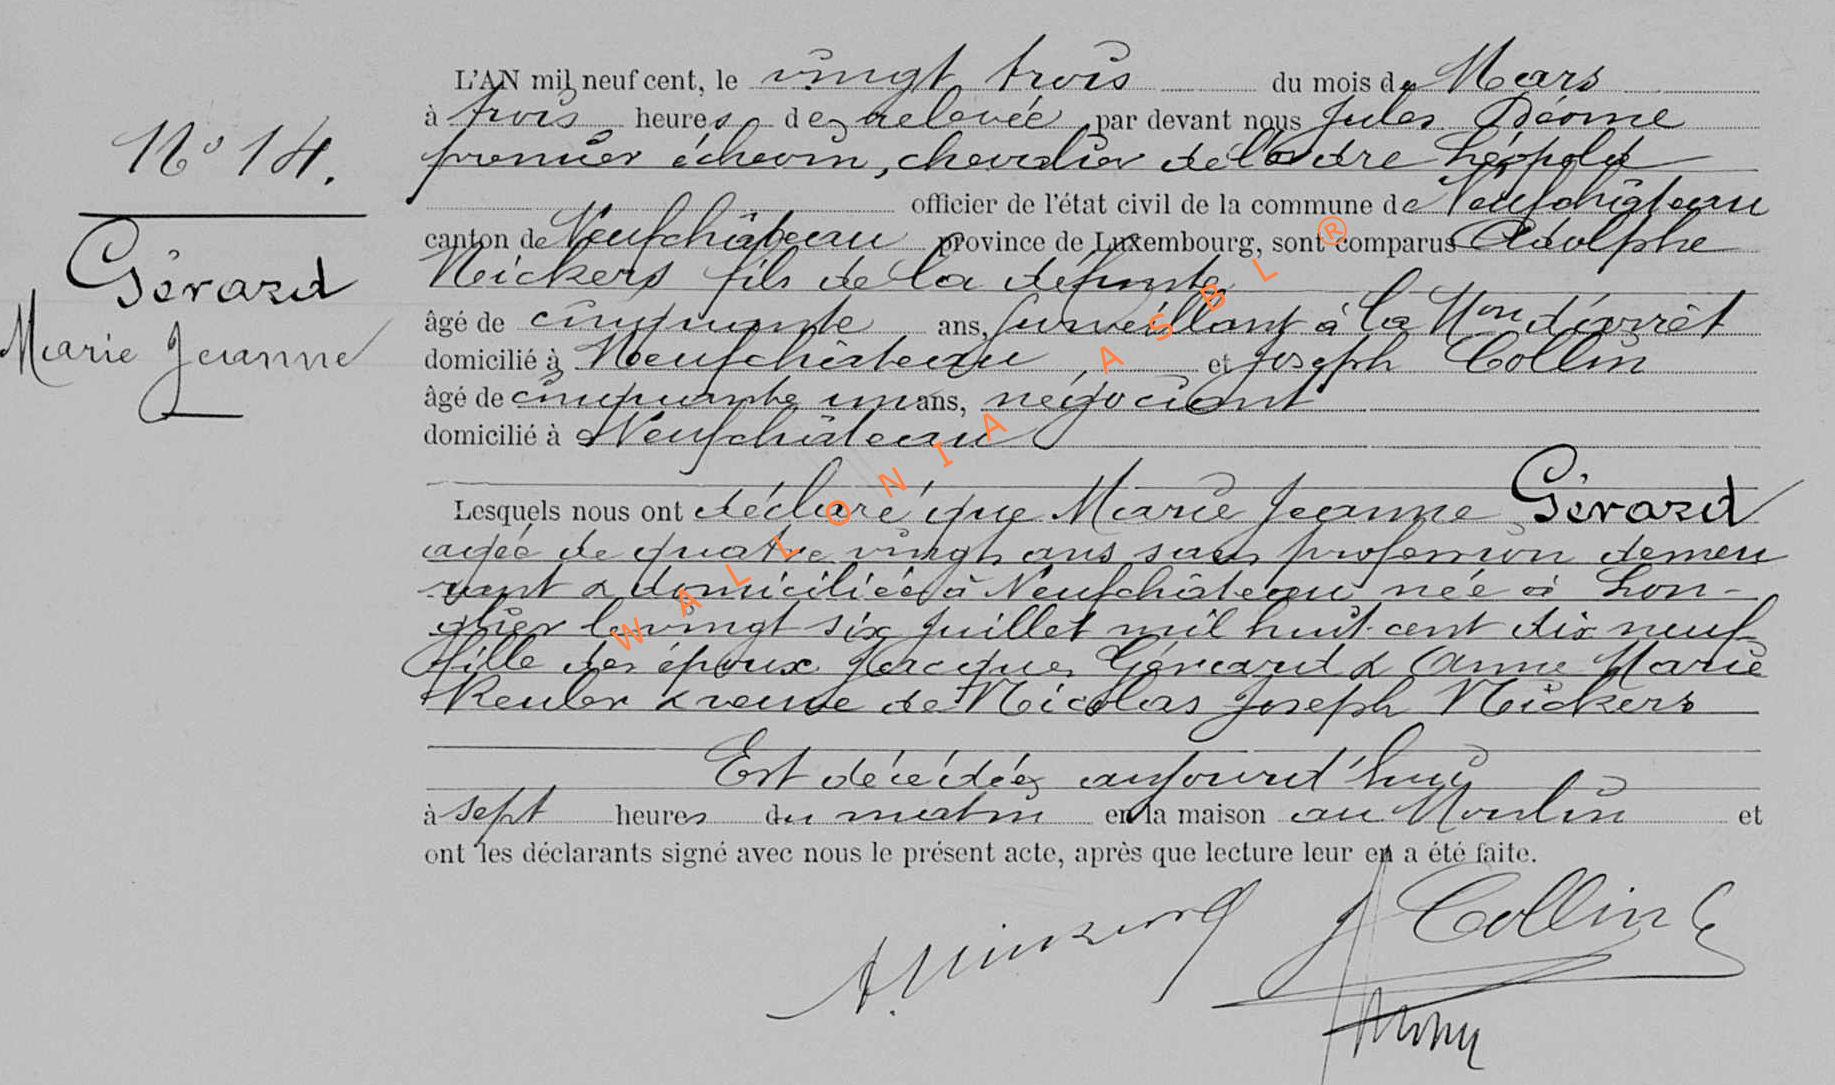 N° 14.
Gérard
Marie Jeanne
L'AN mil neuf cent, le vingt trois du mois de Mars
à trois heures de relevée par devant nous Jules Déome
premier échevin, chevalier de l'ordre Léopold
officier de l'état civil de la commune de Neufchâteau
canton de Neufchâteau province de Luxembourg, sont comparus Adolphe
Nickers fils de la défunte
âgé de cinquante ans, surveillant à la Mon d'arrêt
domicilié à Neufchâteau et Joseph Collin
âgé de cinquante un ans, négociant
domicilié à Neufchâteau
Lesquels nous ont déclaré que Marie Jeanne Gérard
agée de quatre vingts ans sans profession demeu
rant & domiciliée à Neufchâteau née à Lon-
glier le vingt six juillet mil huit cent dix neuf
fille des époux Jacques Gérard & Anne Marie
Reuler & veuve de Nicolas Joseph Nickers
Est décédée aujourd'hui
à sept heures du matin en la maison au Moulin et
ont les déclarants signé avec nous le présent acte, après que lecture leur en a été faite.
J Collin
WALLONIA ASBL ®